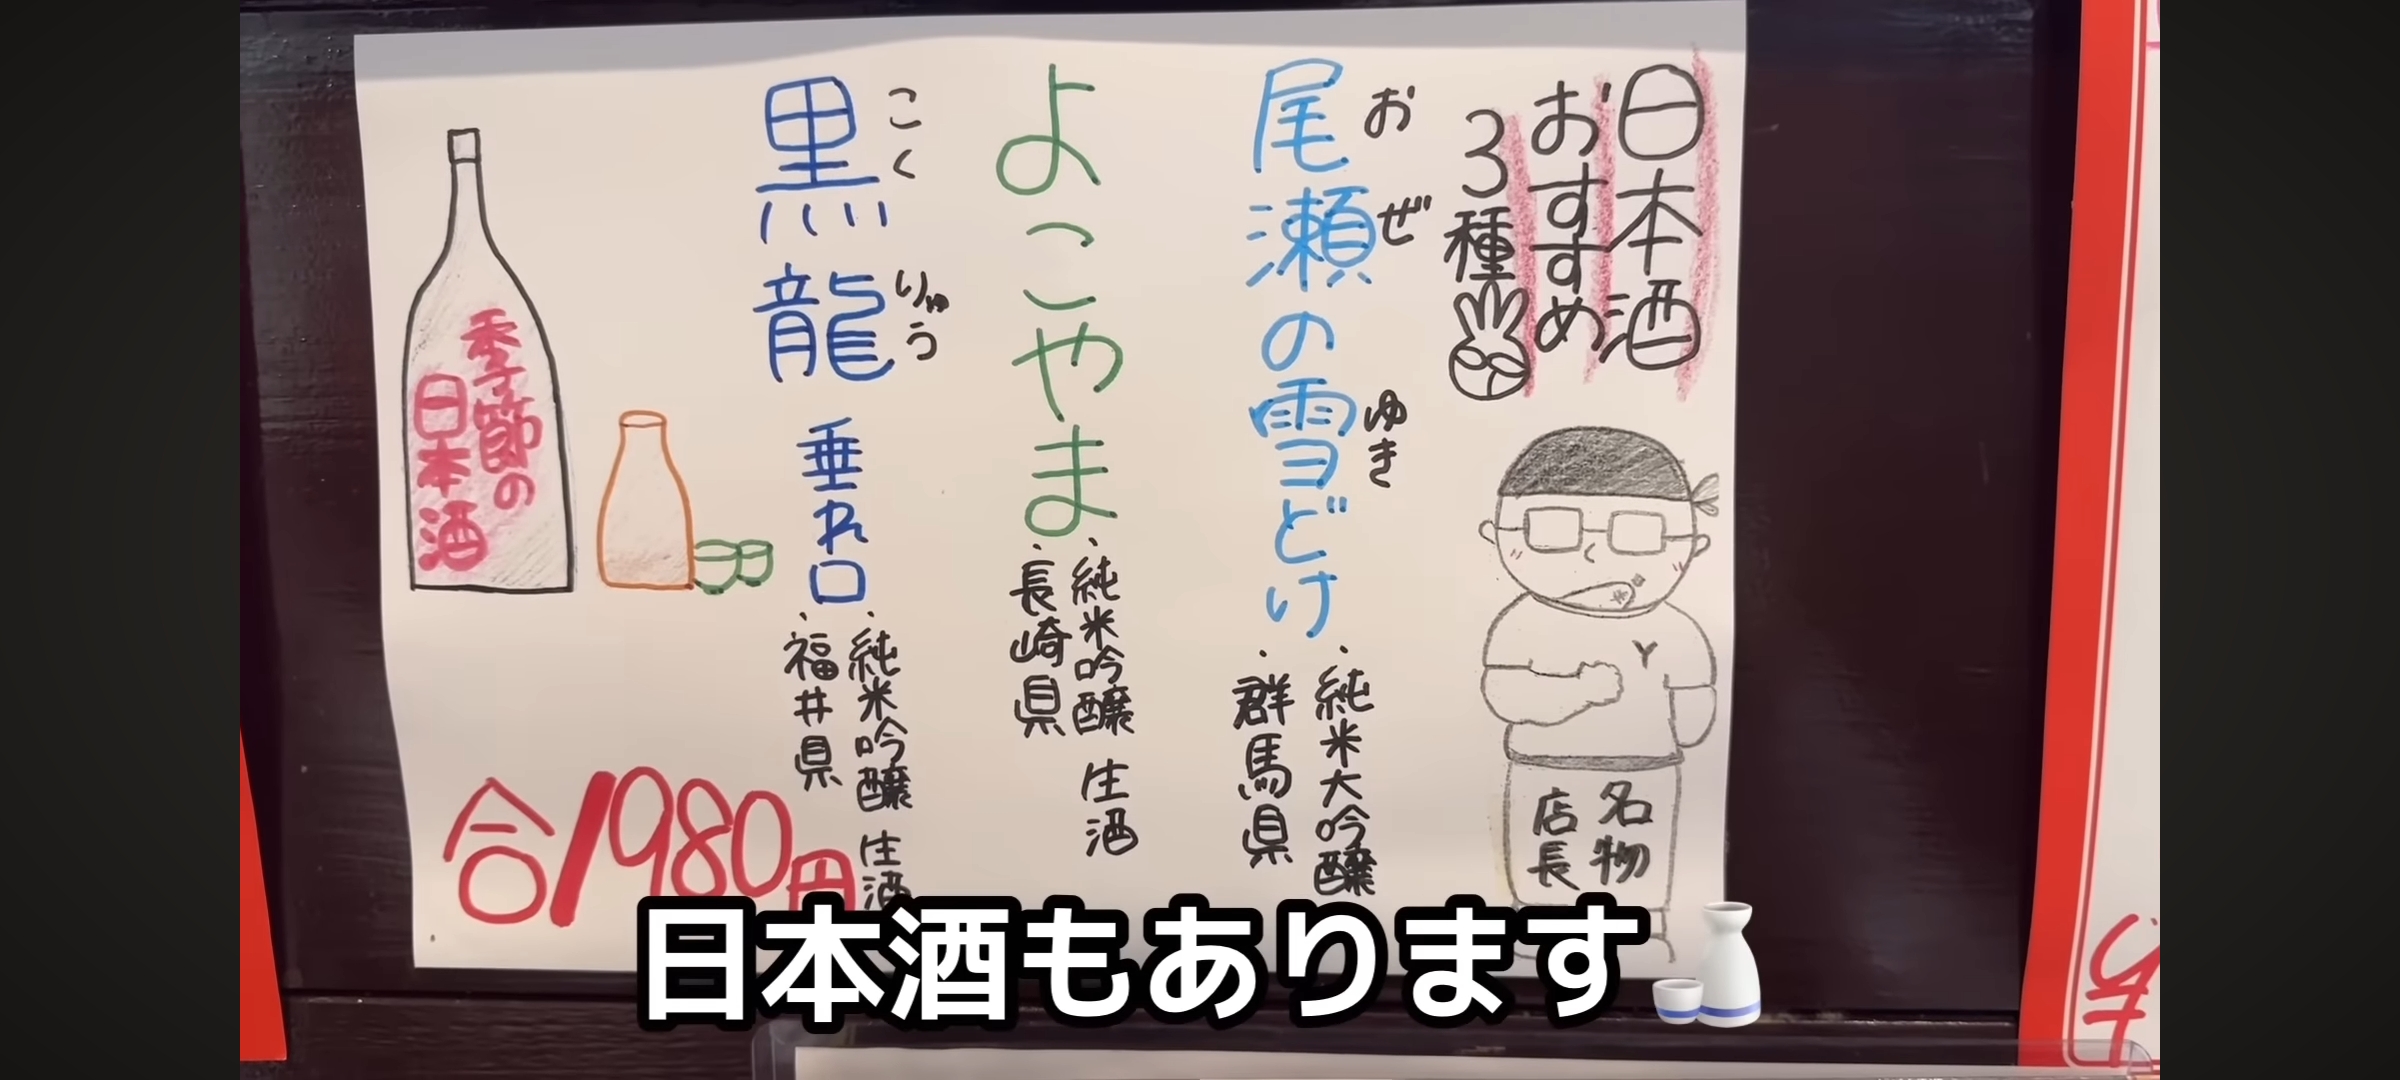 日本酒
おすすめ
3種
尾瀬の雪どけ
おぜ
ゆき
・純米大吟醸
・群馬県
よこやま
・純米吟醸 生酒
・長崎県
黒龍 垂れ口
こくりゅう
・純米吟醸 生酒
・福井県
季節の
日本酒
合/980円
Y
名物
店長
日本酒もあります